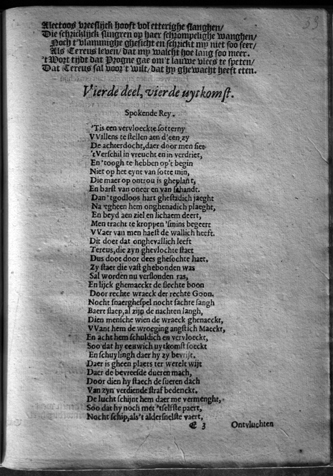 Alectoos vreeslijck hooft vol etterighe slanghen/
Die schricklijck slingren op haer schrompelighe wanghen/
Noch t'vlammighe ghesicht en schrickt my niet soo seer/
Als Tereus leven/ dat my walcht hoe lang soo meer.
't Wort tijdt dat Progne gae om t lauwe vlees te speten/
Dat Tereus sal voor 't wilt/ dat hy ghewacht heeft eten.
Vierde deel, vierde uytkomst.
Spokende Rey.
'Tis een vervloeckte sotterny
VVillens te stellen aen d'een zy
De achterdocht, daer door men siet
't Verschil in vreucht en in verdriet,
En 'toogh te hebben op't begin
Niet op het eynt van sotte min,
Die maer op ontrou is gheplant,
En barst van oneer en van schandt.
Dan 'tgodloos hart ghestadich jaeght
Na 'tgheen hem onghenadich plaeght,
En beyd aen ziel en lichaem deert,
Men tracht te kroppen 'smins begeert
VVaer van men haest de wallich heeft.
Dit doet dat onghevallich leeft
Tereus, die zyn ghevlochte staet
Dus door door dees ghesochte haet,
Zy staet die vast ghebonden was
Sal worden nu verslonden ras,
En lijck ghemaeckt de slechte boon
Door rechte wraeck der rechte Goon.
Nocht snaerghespel nocht sachte sangh
Baert slaep, al zijn de nachten langh,
Dien mensche wien de wraeck ghenaeckt,
VVant hem de wroeging angstich Maeckt,
En acht hem schuldich en vervloeckt,
Soo dat hy eeuwich uytkomst soeckt
En schuylsingh daer hy zy bevrijt,
Daer is gheen plaets ter werelt wijt
Daer de bevreesde dueren mach,
Door dien hy staech de sueren dach
Van zyn verdiende straf bedenckt,
De lucht schijnt hem daer me vermenght,
Soo dat hy noch mét 'tselfste paert,
Nocht schip, als 't aldersnelste vaert,
E 3 Ontvluchten